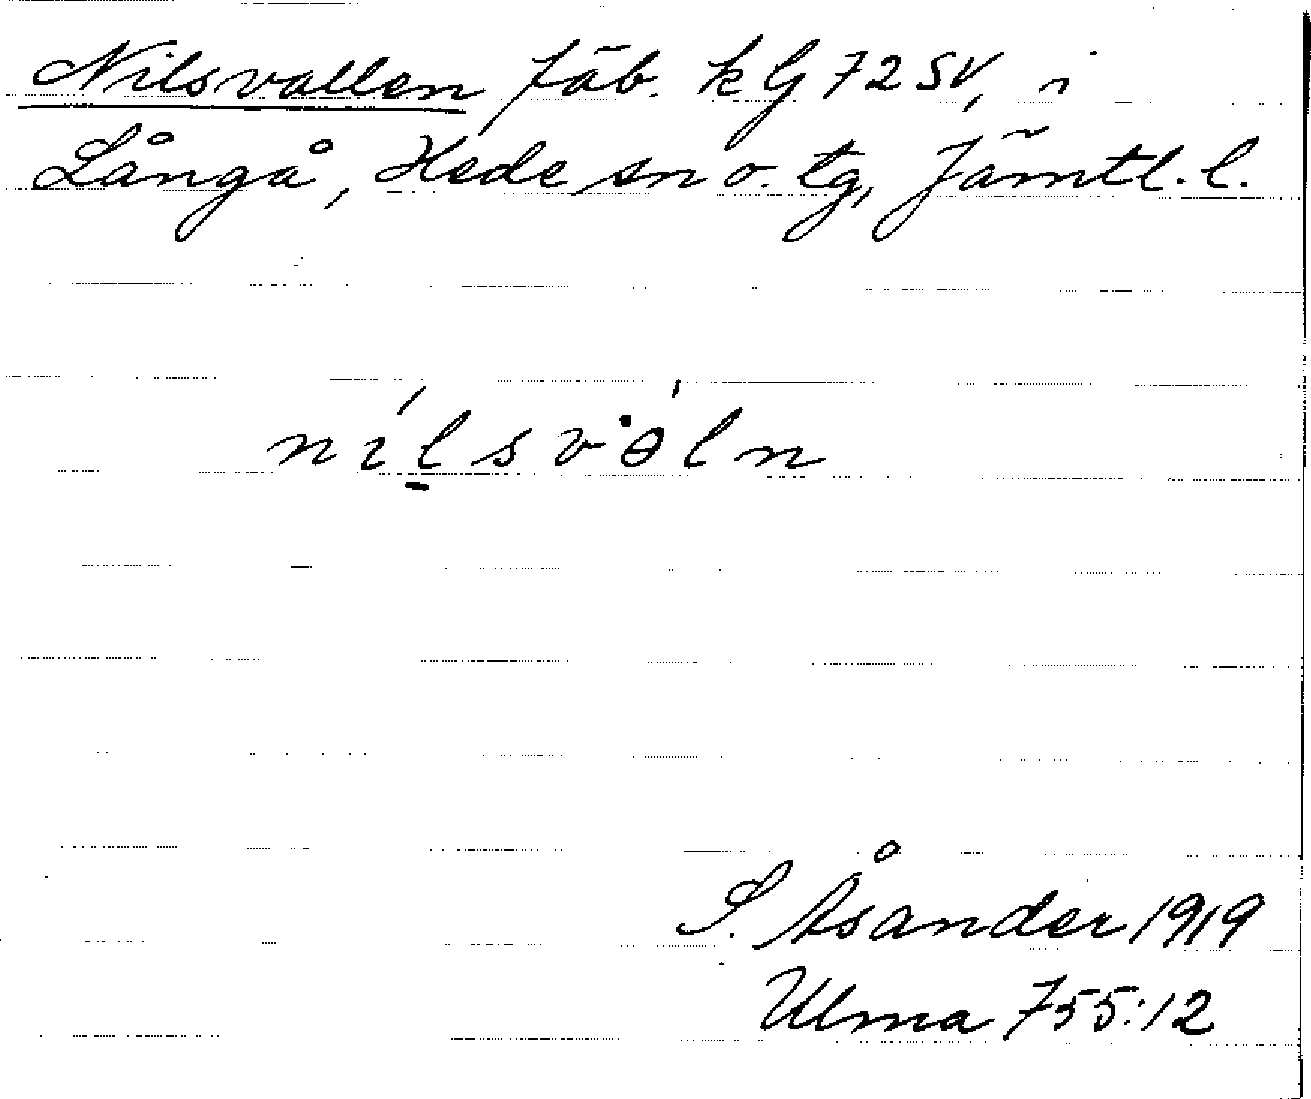 Nilsvallen fäb. kG72SV, i
Långå, Hede sn o. tg, Jämtl. l.
nílsvöln
S. Åsander 1919
Ulma 755:12